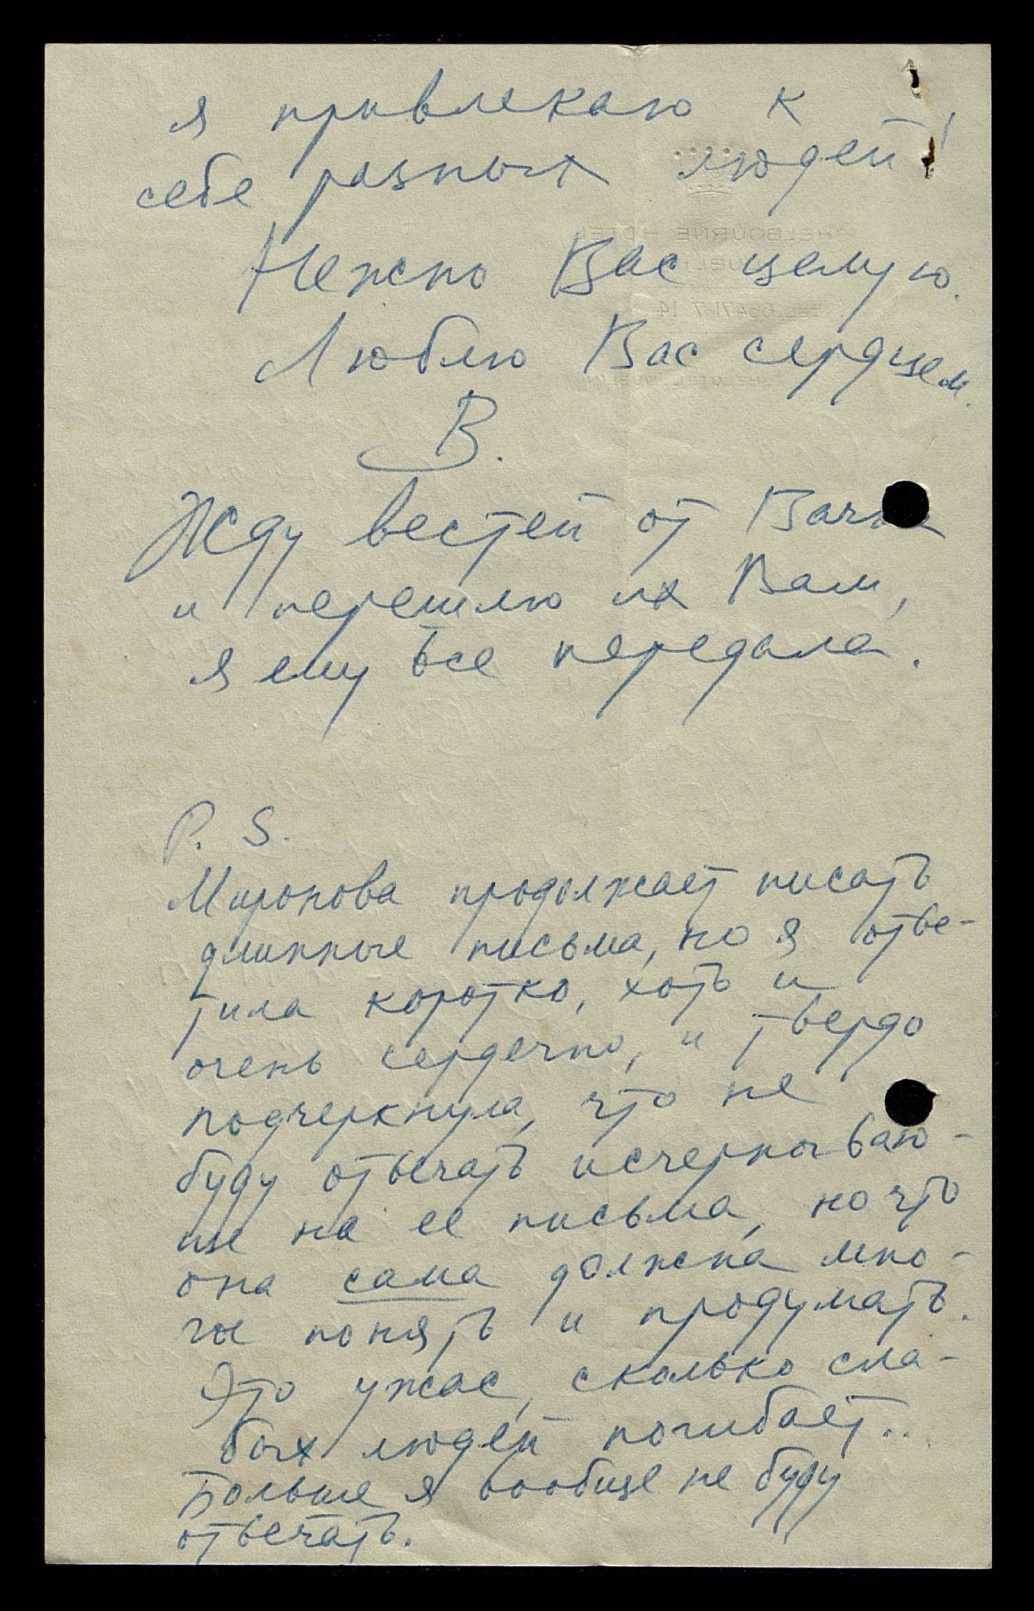 я привлекаю к
себе разных людей!
Нежно Вас целую.
Люблю Вас сердцем.
В.
Жду вестей от
и перешлю их Вам,
я ему все передала.
P. S.
Миронова продолжает писать
длинные письма, но я отве-
тила коротко, хоть и
очень сердечно, и твердо
подчеркнула, что не
буду отвечать исчерпываю-
ще на ее письма, но что
она сама должна мно-
гое понять и продумать.
Это ужас, сколько сла-
бых людей погибает..
Больше я вообще не буду
отвечать.